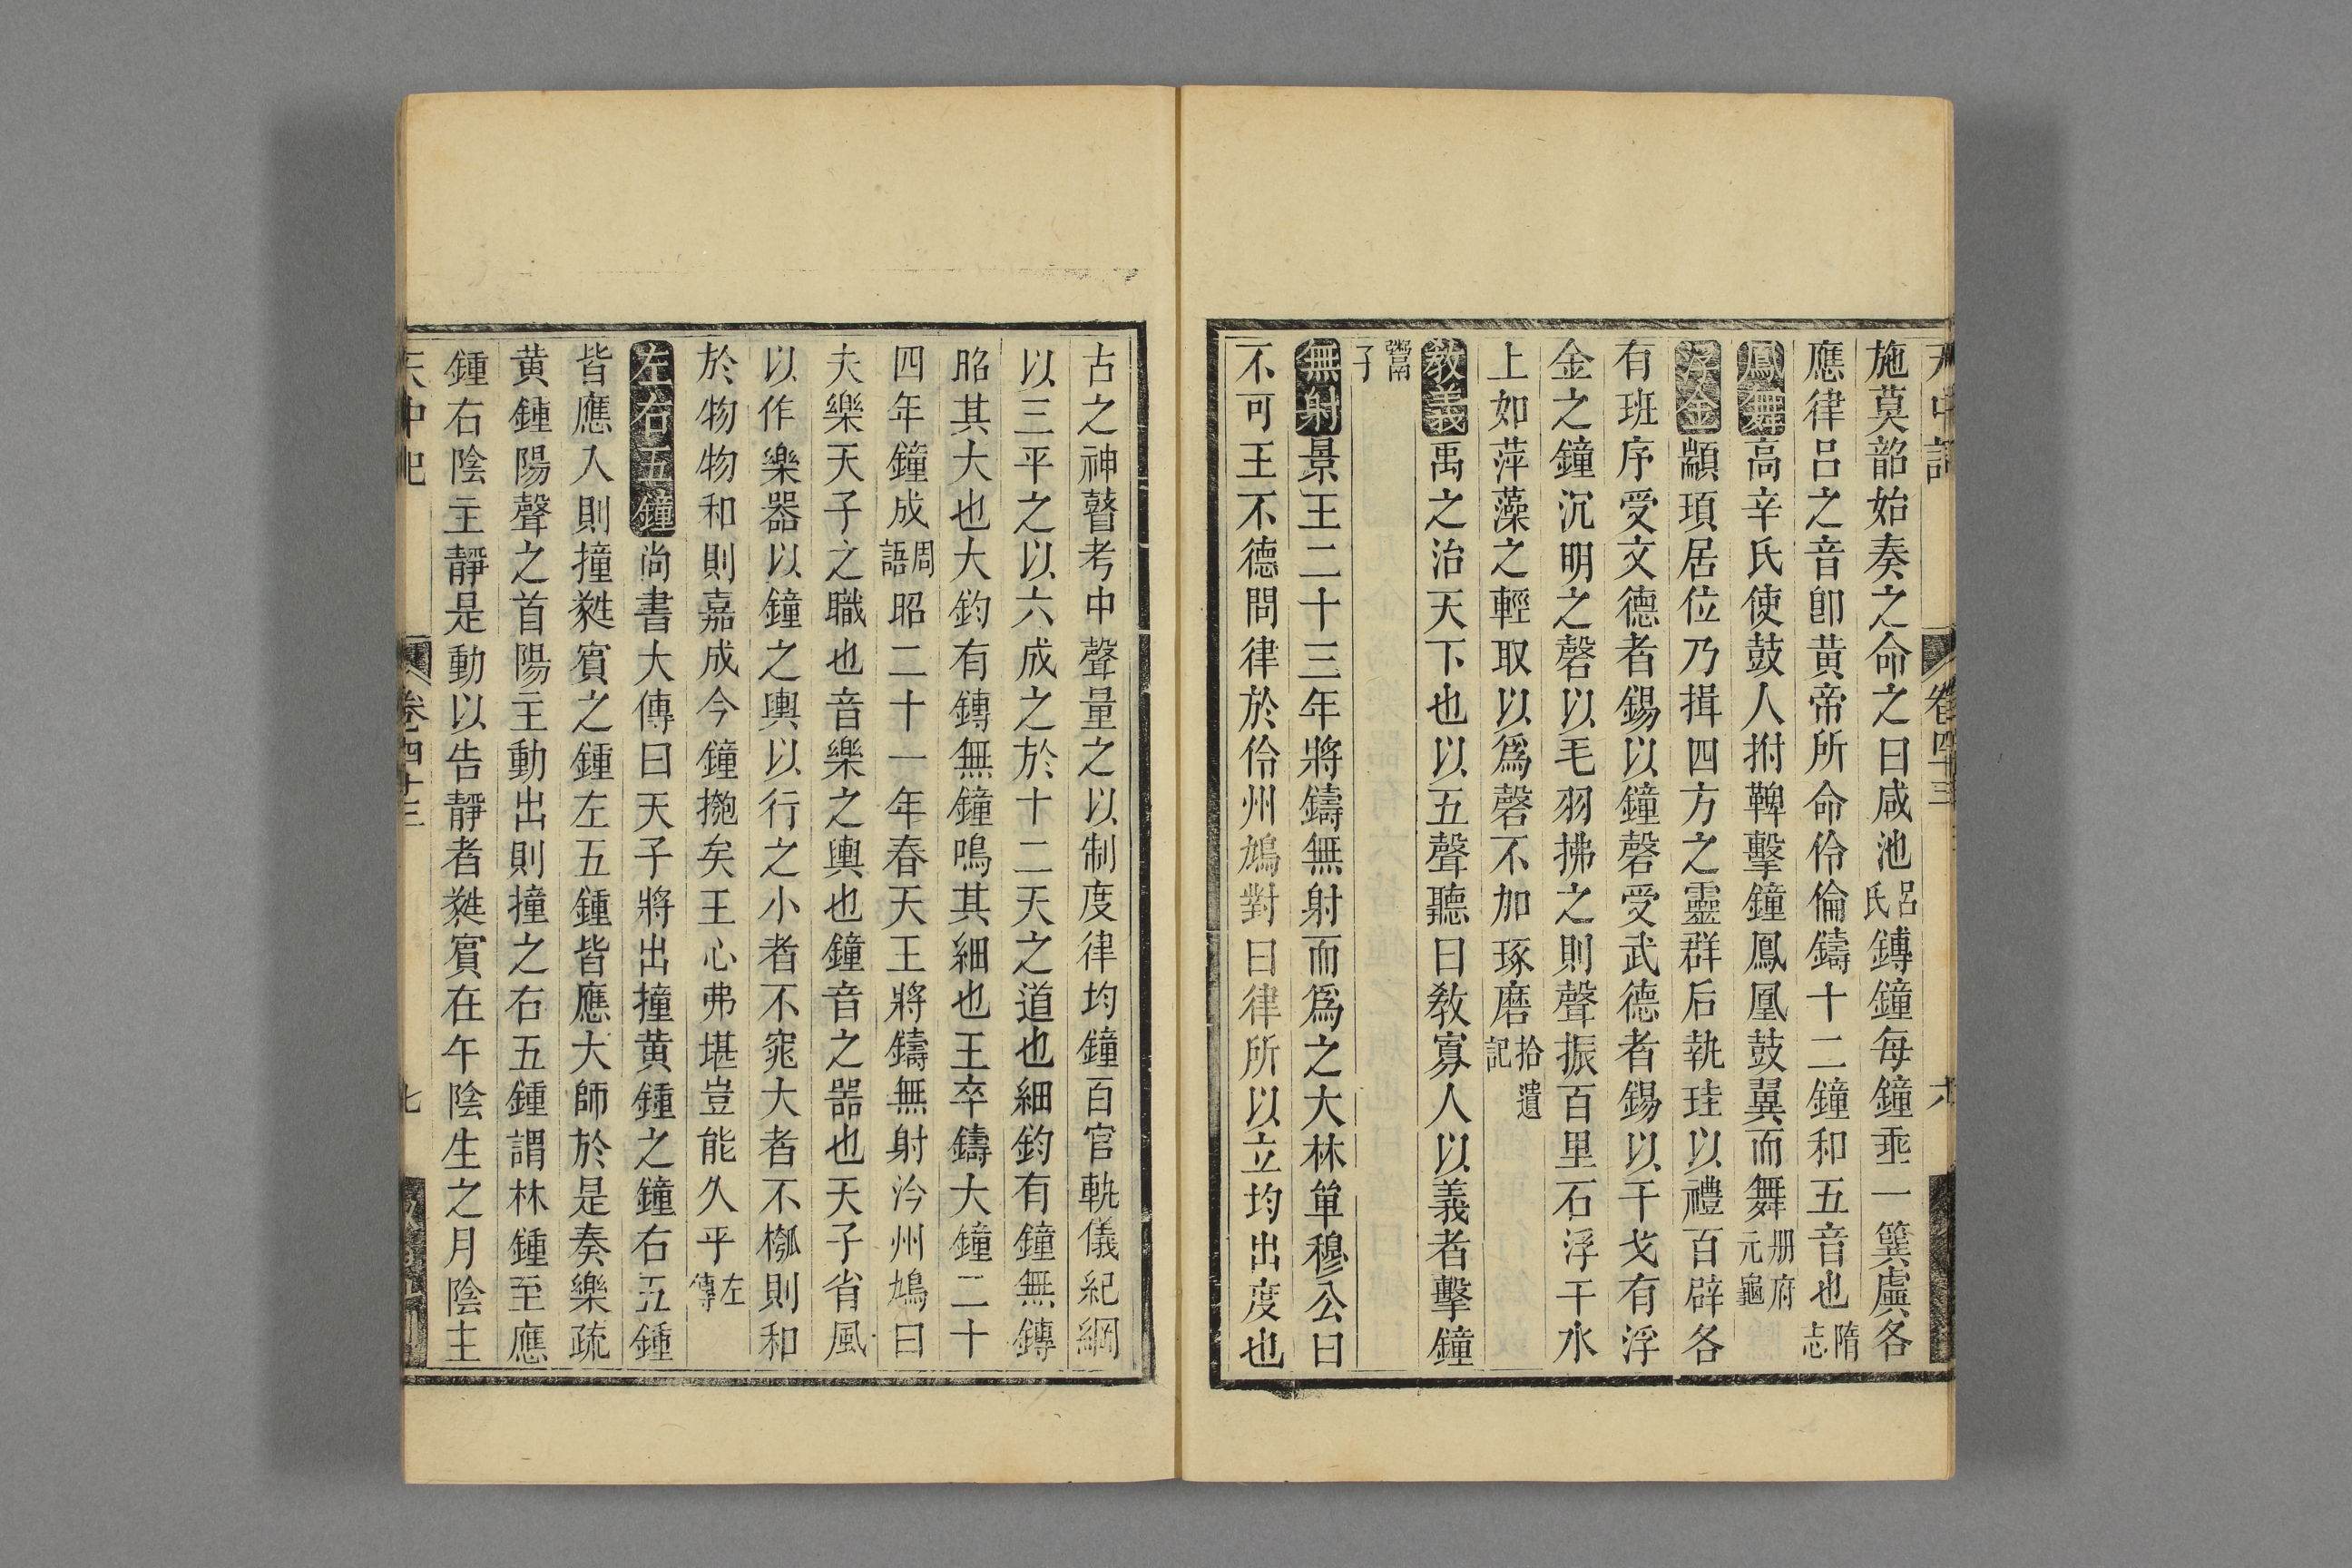 施莫韶始奏之命之曰咸池呂氏鎛鐘每鐘乖一簨虡各
應律呂之音卽黃帝所命伶倫鑄十二鐘和五音也隋志
鳳舞高辛氏使鼓人拊鞞擊鐘鳳凰鼓翼而舞册府元龜
浮金顓頊居位乃揖四方之靈群后執珪以禮百辟各
有班序受文德者錫以鐘磬受武德者錫以干戈有浮
金之鐘沉明之磬以毛羽拂之則聲振百里石浮干水
上如萍藻之輕取以爲磬不加琢磨拾遺記
教義禹之治天下也以五聲聽曰教寡人以義者擊鐘
鬻子
無射景王二十三年將鑄無射而爲之大林單穆公曰
不可王不德問律於伶州鳩對曰律所以立均出度也
古之神瞽考中聲量之以制度律均鐘百官軌儀紀綱
以三平之以六成之於十二天之道也細鈞有鐘無鎛
昭其大也大鈞有鎛無鐘鳴其細也王卒鑄大鐘二十
四年鐘成周語昭二十一年春天王將鑄無射泠州鳩曰
夫樂天子之職也音樂之輿也鐘音之器也天子省風
以作樂器以鐘之輿以行之小者不窕大者不槬則和
於物物和則嘉成今鐘摦矣王心弗堪豈能久乎左傳
左右五鐘尚書大傳曰天子將出撞黃鍾之鐘右五鍾
皆應入則撞蕤賓之鍾左五鍾皆應大師於是奏樂疏
黃鍾陽聲之首陽主動出則撞之右五鍾謂林鍾至應
鍾右陰主靜是動以告靜者蕤賓在午陰生之月陰主
天中記 卷四十三 七